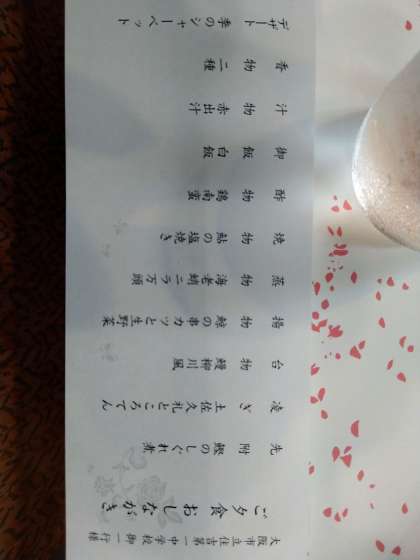 大阪市立住吉第一中学校御一行様
ご夕食おしながき
先附 鰹のしぐれ煮
凌ぎ 土佐久礼ところてん
台物 鰻柳川風
揚物 鯨の串カツと生野菜
蒸物 海老蛸ニラ万頭
焼物 鮎の塩焼き
酢物 鶏南蛮
御飯 白飯
汁物 赤出汁
香物 二種
デザート 季のシャーベット